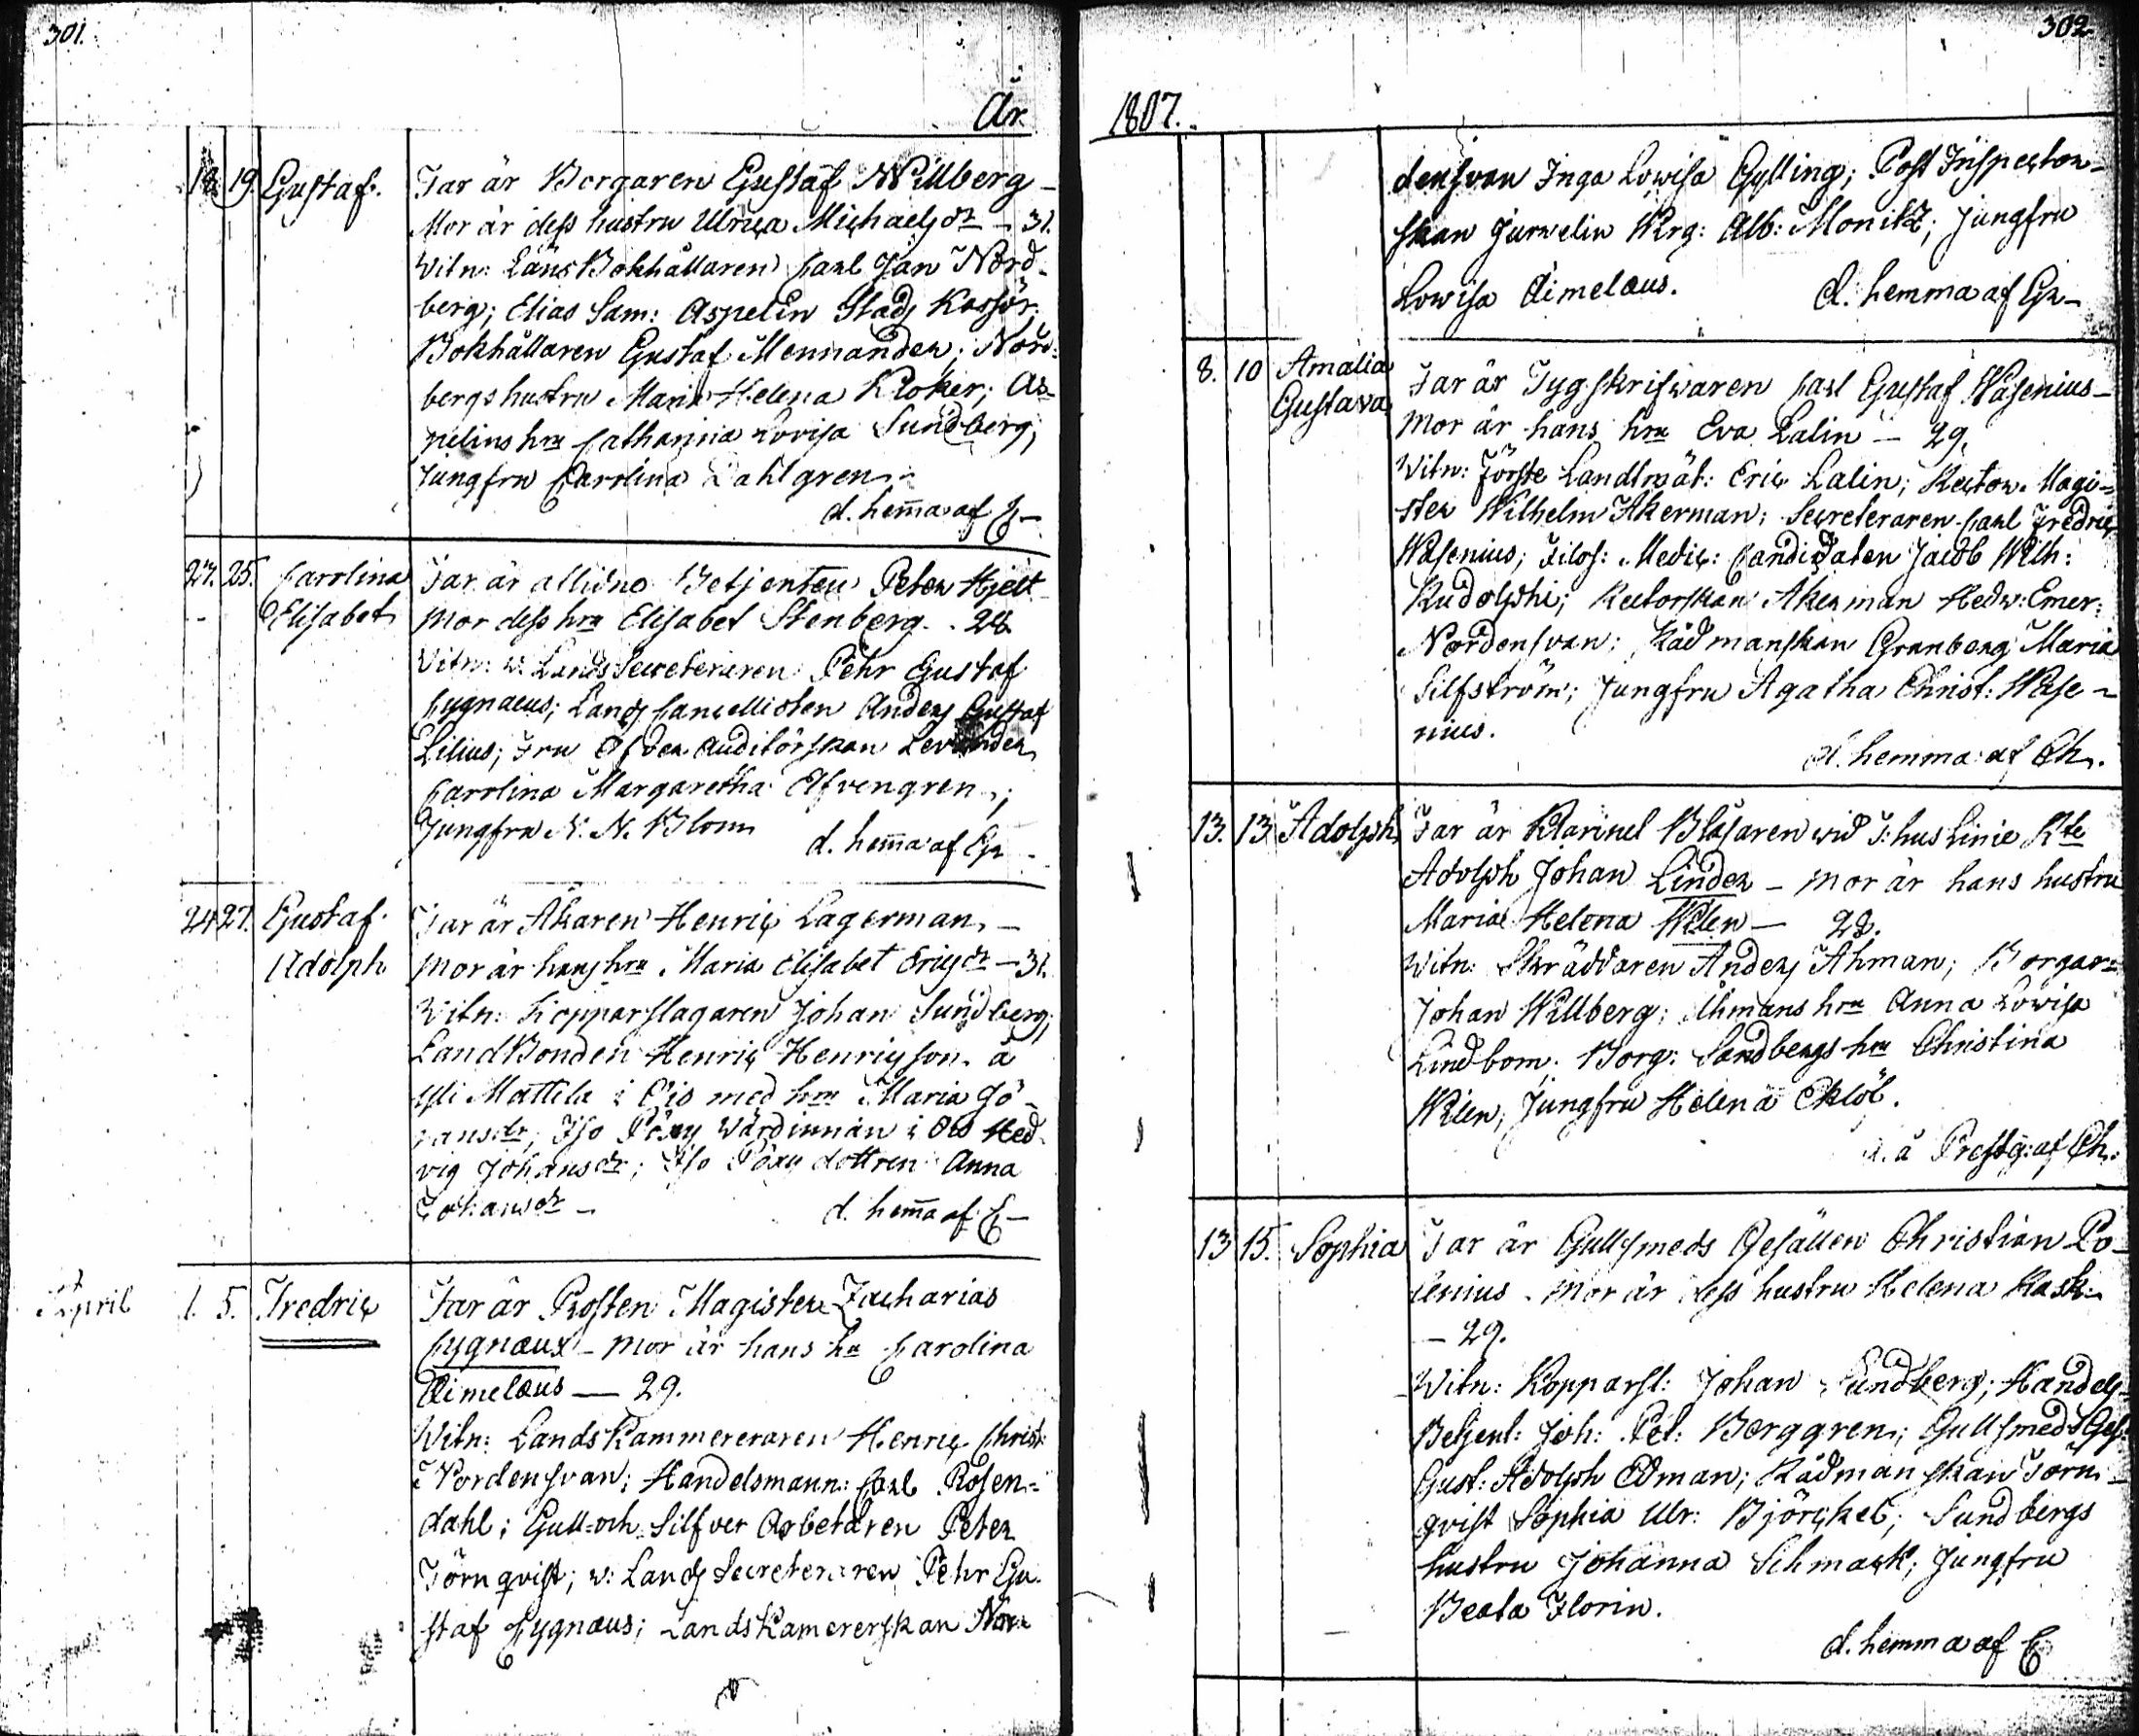 301.
År
18 19 Gustaf. Far är Borgaren Gustaf Willberg –
Mor är dess hustru Ulrica Michaelsdr – 31.
Vitn: Läns Bokhållaren Carl Jan Nord-
berg; Elias Sam: Aspelin Stads Kassör.
Bokhållaren Gustaf Mennander; Nord-
bergs hustru Maria Helena Kloker; As-
pelins hru Catharina Lovisa Sundberg;
Jungfru Carolina Dahlgren.
d. hem̄a af C –
23. 25. Carolina Far är allidne Betjenten Peter Hjelt
Elisabet Mor dess hru Elisabet Stenberg. – 28
Vitn: v. Lands Secreteraren Pehr Gustaf
Cygnaeus; Lands Cancellisten Anders Gustaf
Lilius; Fru Öfver Auditörskan Levander
Carolina Margaretha Elfvengren;
Jungfru N. N. Blom
d. hem̄a af Gr –
24 27. Gustaf Far är Åkaren Henric Lagerman –
Adolph Mor är hans hru Maria Elisabet Ericsdr – 31.
Vitn: Kopparslagaren Johan Sundberg;
LandBonden Henric Henricsson å
Yli Mattila i Ois med hru Maria Jö-
ransdr; Iso Pöxy Wärdinnan i Ois Hed-
vig Johansdr; Iso Pöxy dottren Anna
Johansdr –
d. hem̄a af C –
April 1. 5. Fredric Far är Prosten Magister Zacharias
Cygnæus – Mor är hans hu Carolina
Aimelæus — 29.
Witn: Lands Kammereraren Henric Christ:
Nordensvan; Handelsmann: Carl Rosen-
dahl; Gull- och Silfver Arbetaren Peter
Törnqvist; v: Lands Secreteraren Pehr Gu-
staf Cygnæus; Lands Kamererskan Nor-
302
1807.
densvan Inga Lowisa Gylling; Post Inspector-
skan Jurvelin Marg: Alb: Monike; Jungfru
Lowisa Aimelæus.
d. hemma af Gr –
8. 10 Amalia Far är Tygskrifwaren Carl Gustaf Wasenius –
Gustava Mor är hans hru Eva Lalin – 29.
Witn: Förste Landtmät: Eric Lalin; Rector Magi-
ster Wilhelm Åkerman; Secreteraren Carl Fredric
Wasenius; Filos: Medic: Candidaten Jacob Wilh:
Rudolphi; Rectorskan Åkerman Hedw: Emer:
Nordensvan; Rådmanskan Granberg Maria
Silfström; Jungfru Agatha Christ: Wase-
nius.
d. hemma af Ch.
13. 13 Adolph Far är Klarinet Blåsaren wid T:hus Linie Rte
Adolph Johan Linder – Mor är hans hustru
Maria Helena Wilen – 28.
Witn: Skräddaren Anders Åhman; Borgar:
Johan Willberg; Åhmans hru Anna Lowisa
Lindbom; Borg: Sandbergs hru Christina
Wilen; Jungfru Helena Eklöf.
d. å Prestg: af Ch.
13 15. Sophia Far är Gullsmeds Gesällen Christian Po-
lenius – Mor är dess hustru Helena Rask
– 29.
Witn: Kopparsl: Johan Sundberg; Handels
Betjent: Joh: Pet: Borggren; Gullsmeds Ges:
Gust: Adolph Edman; Rådmanskan Törn-
qvist Sophia Ulr: Björckel; Sundbergs
hustru Johanna Schmack; Jungfru
Beata Florin.
d. hemma af C